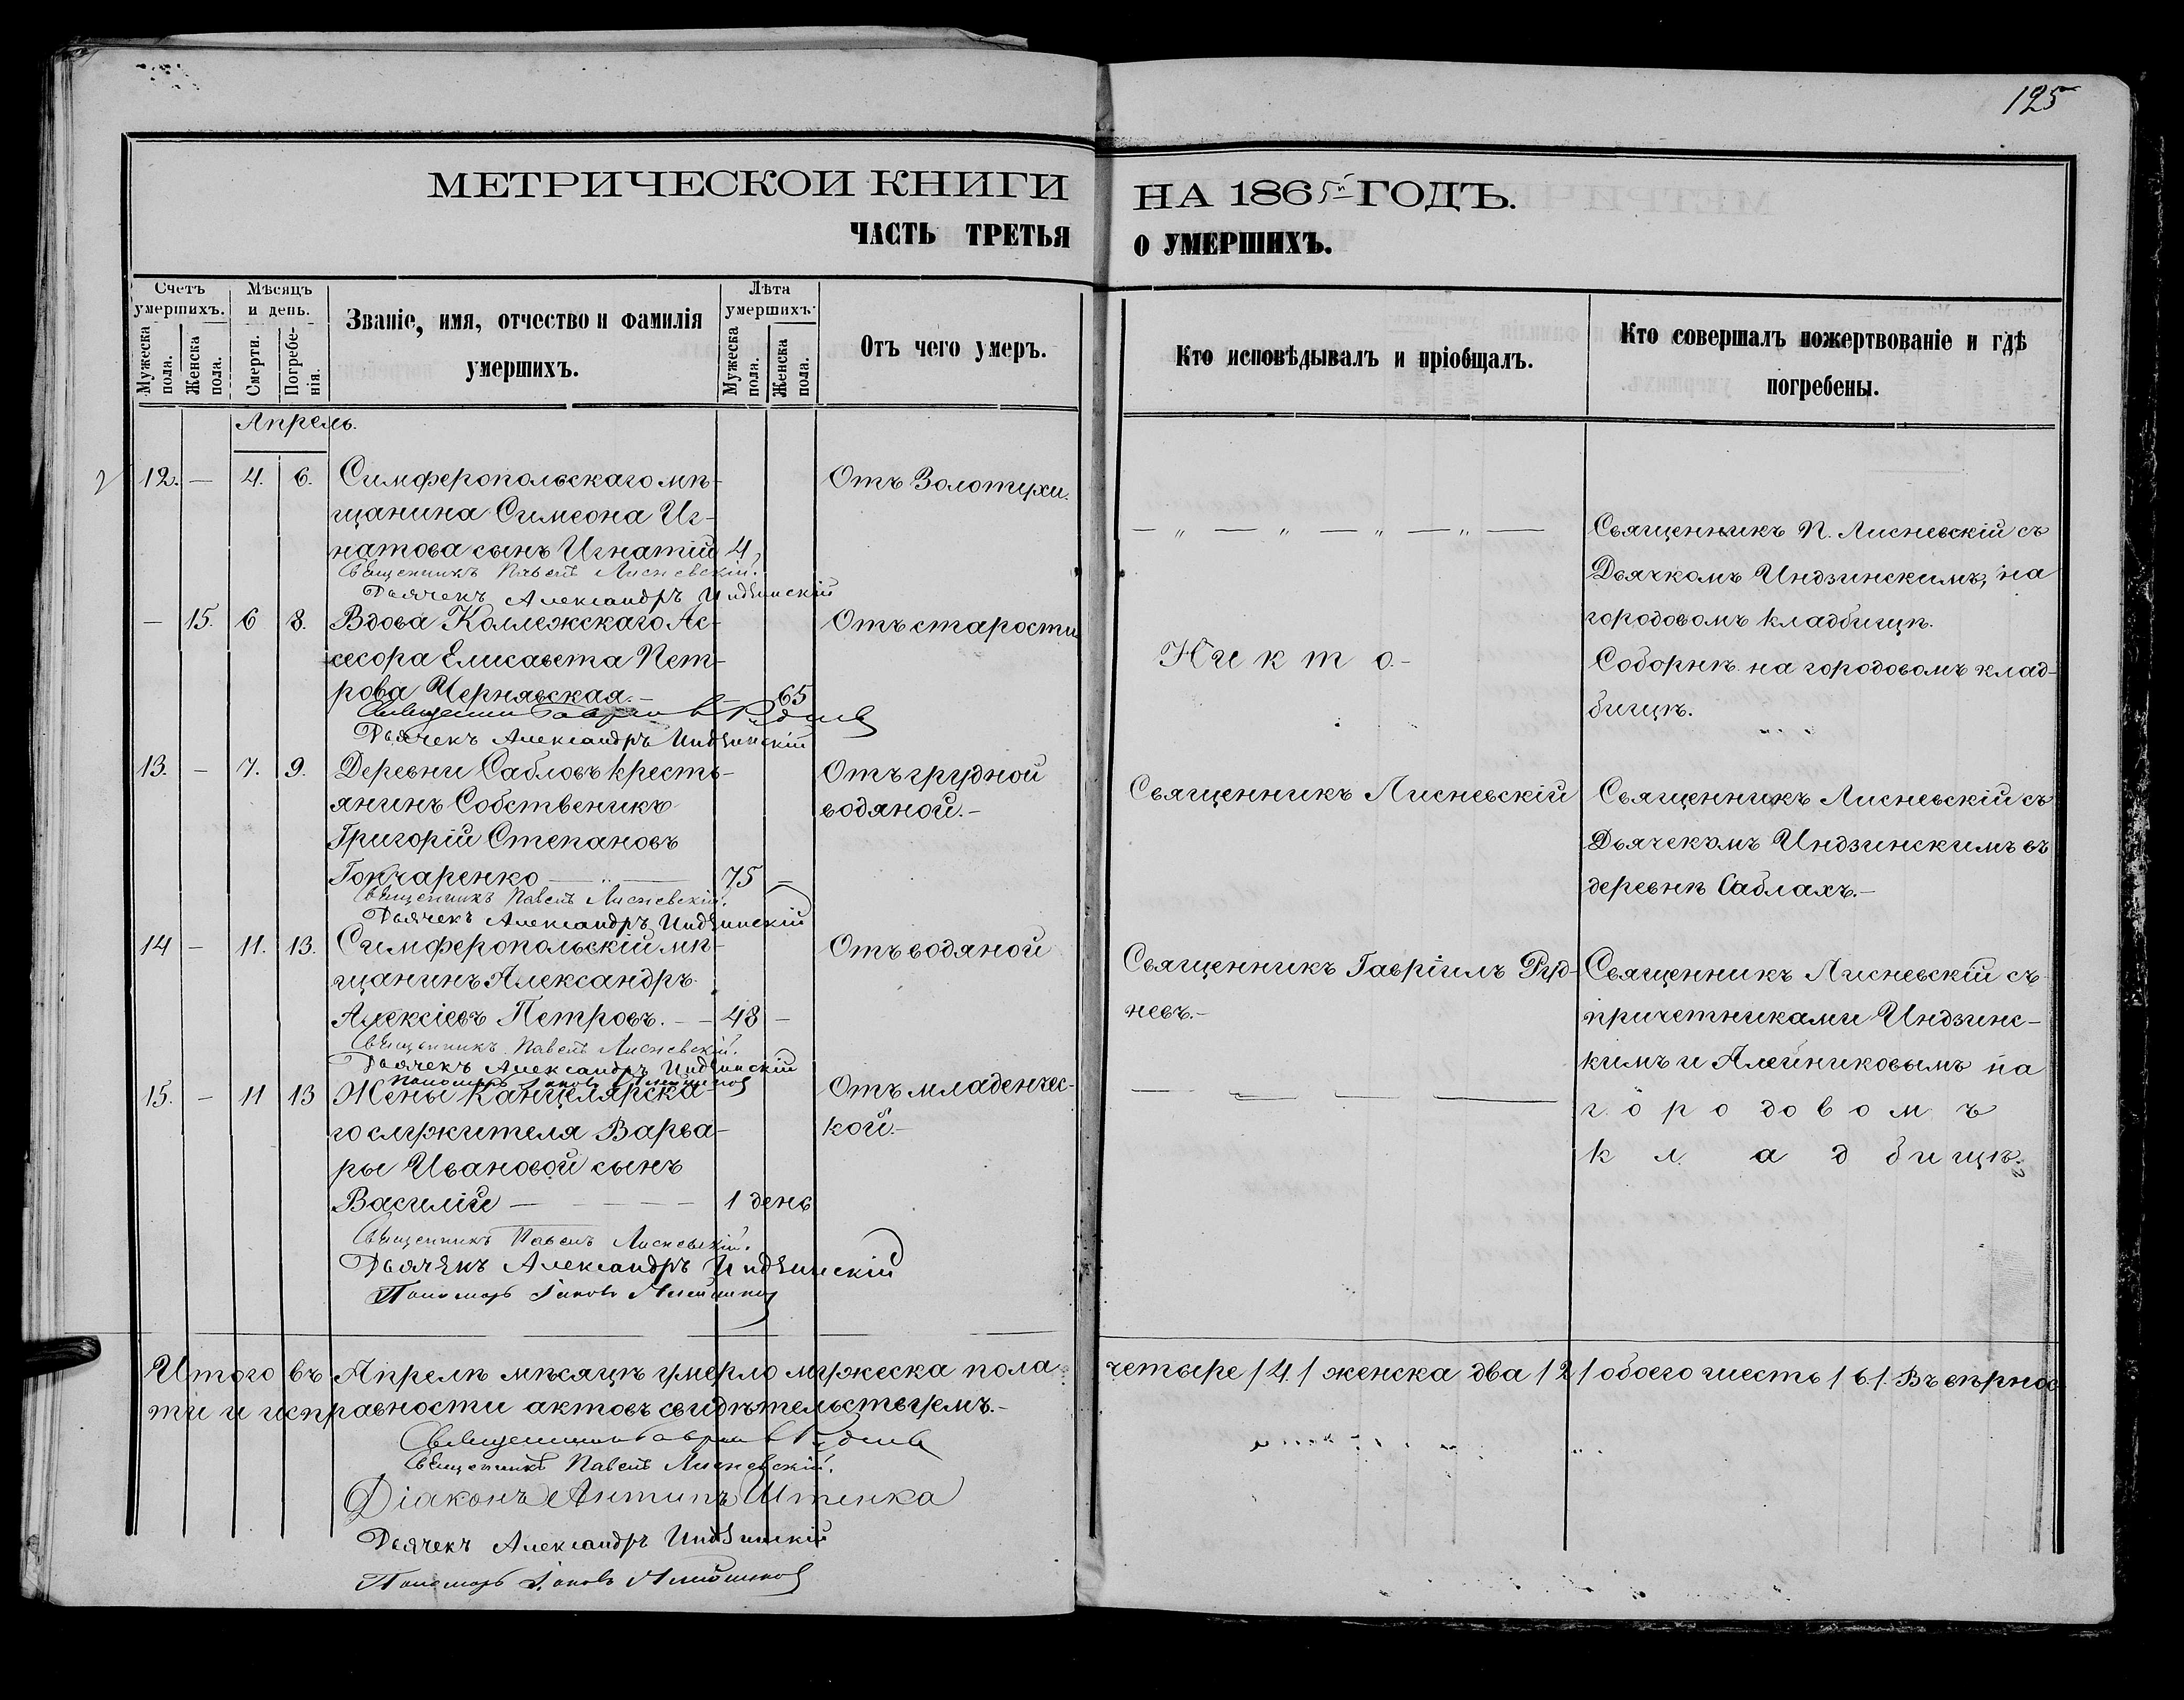 125
МЕТРИЧЕСКОЙ КНИГИ НА 1865й ГОДЪ.
ЧАСТЬ ТРЕТЬЯ О УМЕРШИХЪ.
Счетъ умершихъ.
Мужеска пола.
Женска пола.
Мѣсяцъ и день.
Смерти.
Погребенія.
Званіе, имя, отчество и фамилія
умершихъ.
Лѣта умершихъ.
Мужеска пола.
Женска пола.
Отъ чего умеръ.
Кто исповѣдывалъ и пріобщалъ.
Кто совершалъ пожертвованіе и гдѣ
погребены.
Апрель.
12. — 4. 6. Симферопольскаго мѣ- Отъ Золотухи.
щанина Симеона Иг-
натова сынъ Игнатій 4
Священникъ Павелъ Лисневскій.
Дьячекъ Александръ Индзинскій
— " — " — " — " —
Священникъ П. Лисневскій съ
Дьячкомъ Индзинскимъ, на
городовомъ кладбищѣ.
— 15. 6 8. Вдова Коллежскаго Ас- Отъ старости
сесора Елисавета Пет-
рова Чернявская. — — 65
Священникъ Гавріилъ Рудневъ
Дьячекъ Александръ Индзинскій
Никто. —
Соборнѣ на городовомъ клад-
бищѣ.
13. — 7. 9. Деревни Сабловъ кресть- Отъ грудной
янинъ Собственикъ водяной. —
Григорій Степановъ
Гончаренко — " — 75 —
Священникъ Павелъ Лисневскій.
Дьячекъ Александръ Индзинскій
Священникъ Лисневскій
Священникъ Лисневскій съ
Дьячекомъ Индзинскимъ въ
деревнѣ Саблахъ. —
14 — 11. 13. Симферопольскій мѣ- Отъ водяной
щанинъ Александръ
Алексіевъ Петровъ. — — 48 —
Священникъ Павелъ Лисневскій.
Дьячекъ Александръ Индзинскій
Пономарь Іаковъ Алейниковъ
Священникъ Гавріилъ Руд-
невъ. —
Священникъ Лисневскій съ
причетниками Индзинс-
кимъ и Алейниковымъ на
городовомъ
кладбищѣ.
15. — 11 13 Жены Канцелярска- Отъ младенчес-
го служителя Варва- кой. —
ры Ивановой сынъ
Василій — — — — 1 день
Священникъ Павелъ Лисневскій.
Дьячекъ Александръ Индзинскій
Пономарь Іаковъ Алейниковъ
— — — —
Итого въ Апрелѣ мѣсяцѣ умерло мужеска пола четыре /4/ женска два /2/ обоего шесть /6/. Въ вѣрнос
ти и исправности актовъ свидѣтельствуемъ. —
Священникъ Гавріилъ Рудневъ
Священникъ Павелъ Лисневскій.
Діаконъ Антипъ Штенка
Дьячекъ Александръ Индзинскій
Пономарь Іаковъ Алейниковъ